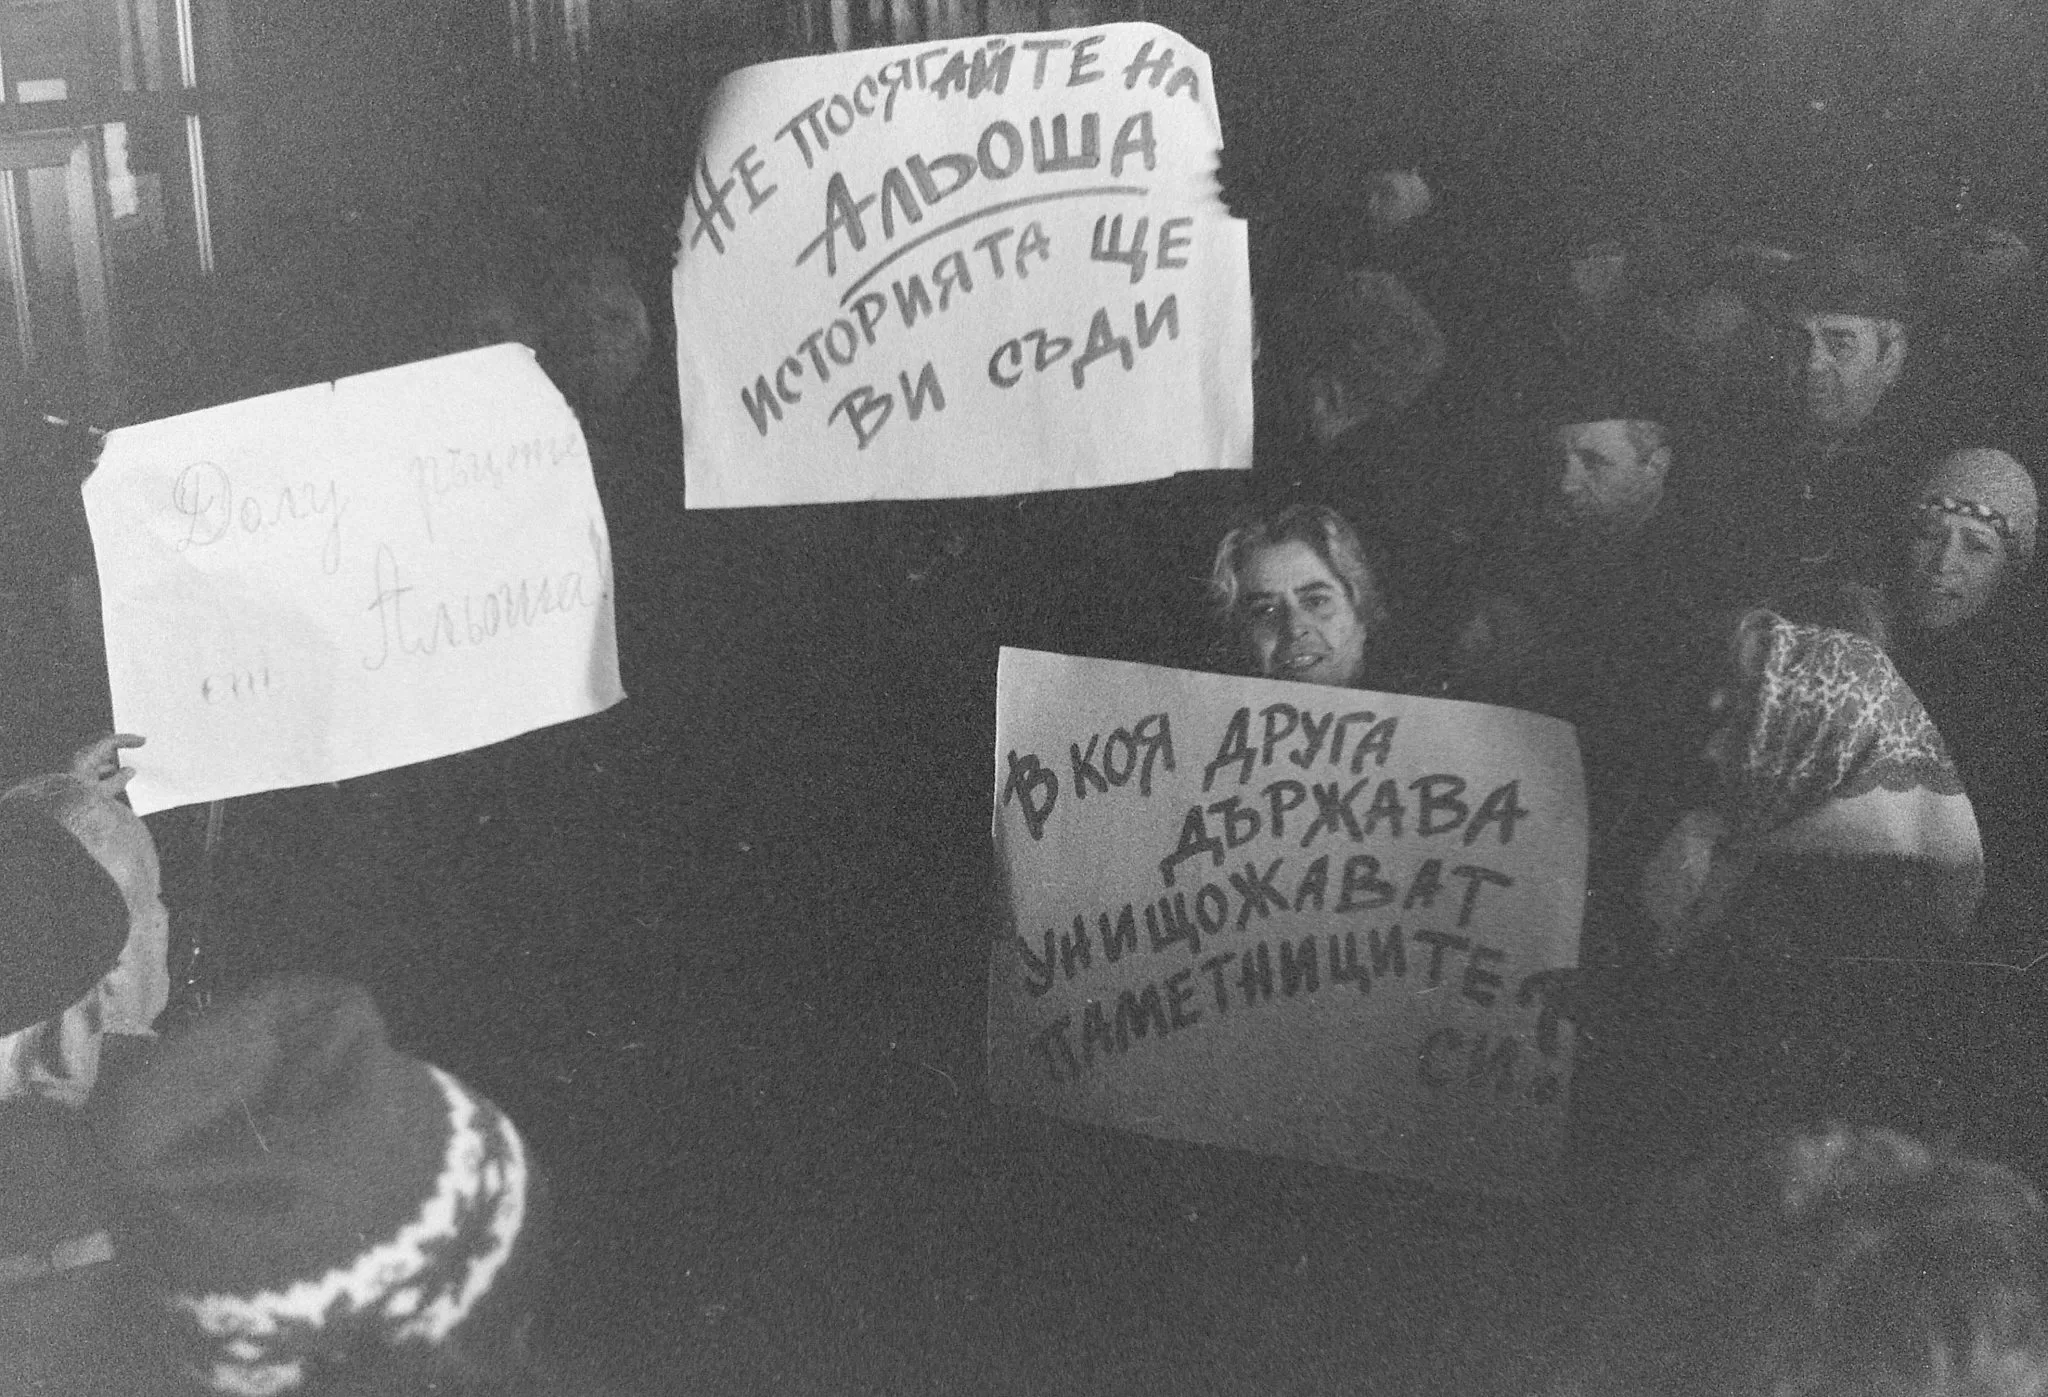 НЕ ПОСЯГАЙТЕ НА
АЛЬОША
ИСТОРИЯТА ЩЕ
ВИ СЪДИ
Долу ръцете
от Альоша!
В КОЯ ДРУГА
ДЪРЖАВА
УНИЩОЖАВАТ
ПАМЕТНИЦИТЕ
СИ?